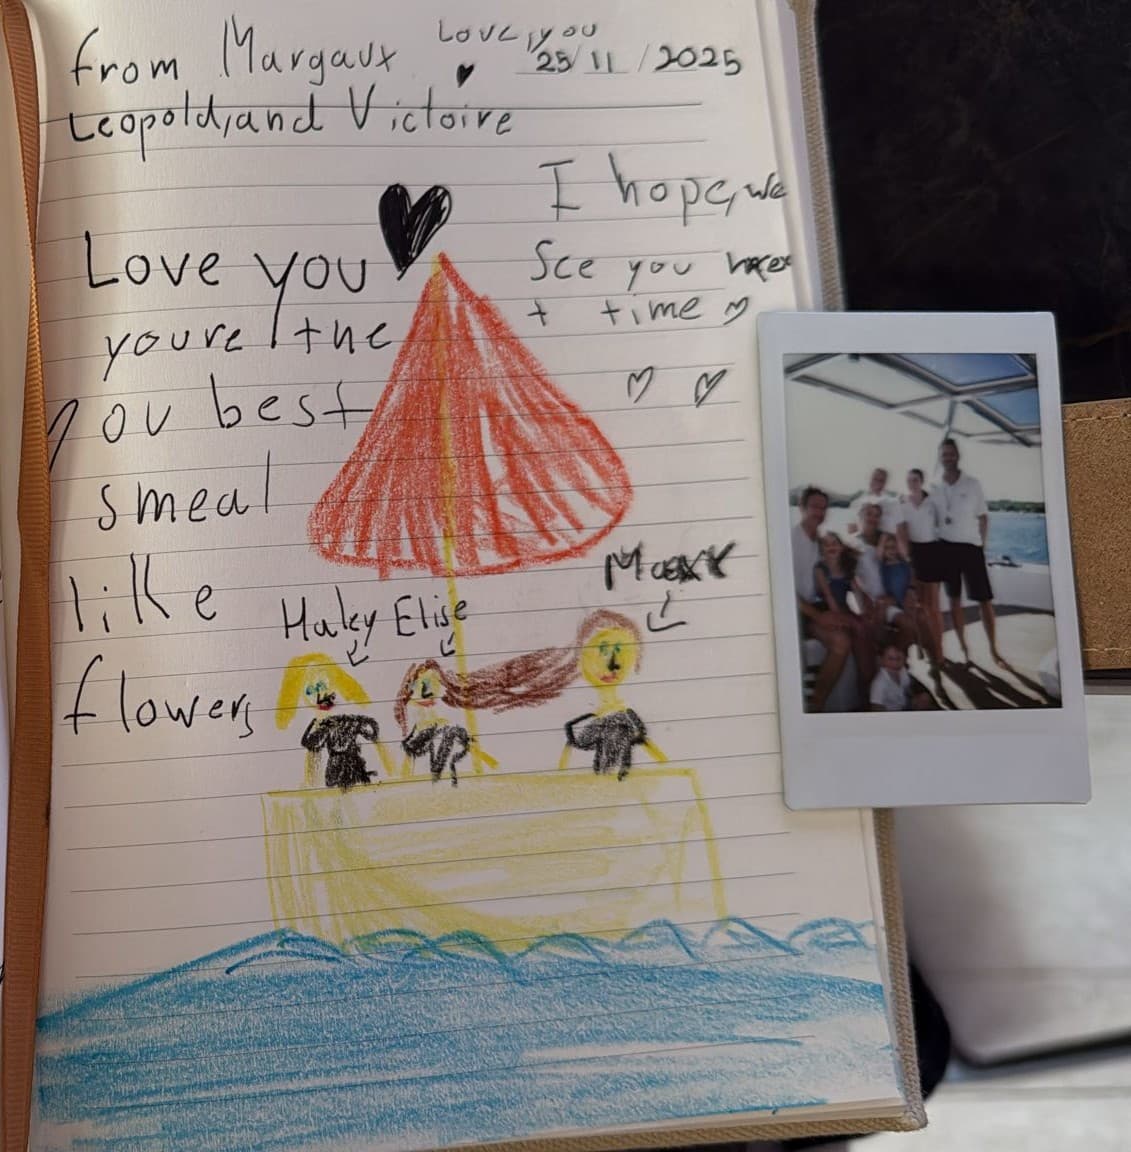 from Margaux Love, you
25/11/2025
Leopold, and Victoire
I hope, we
See you nex
t time
Love you
youre the
you best
smeal
like
flowers
Haley Elise